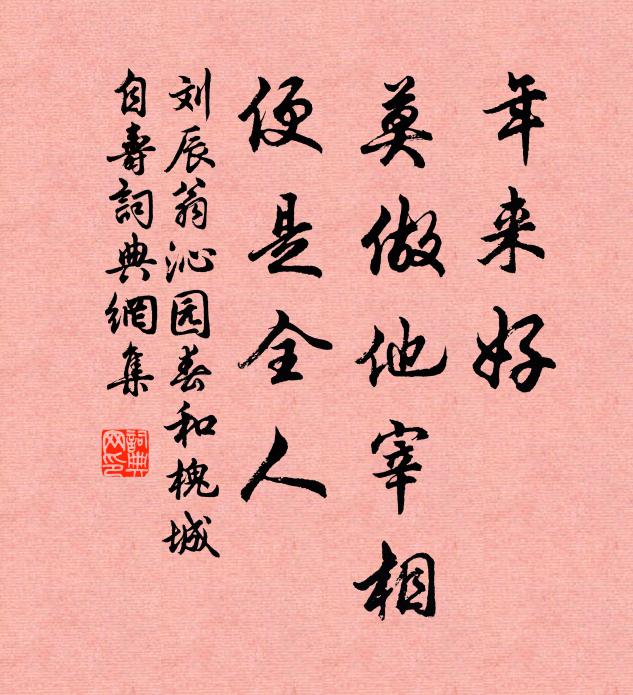 年来好
莫做他宰相
便是全人
刘辰翁沁园春和槐城
自壽詞典網集
詞典网印